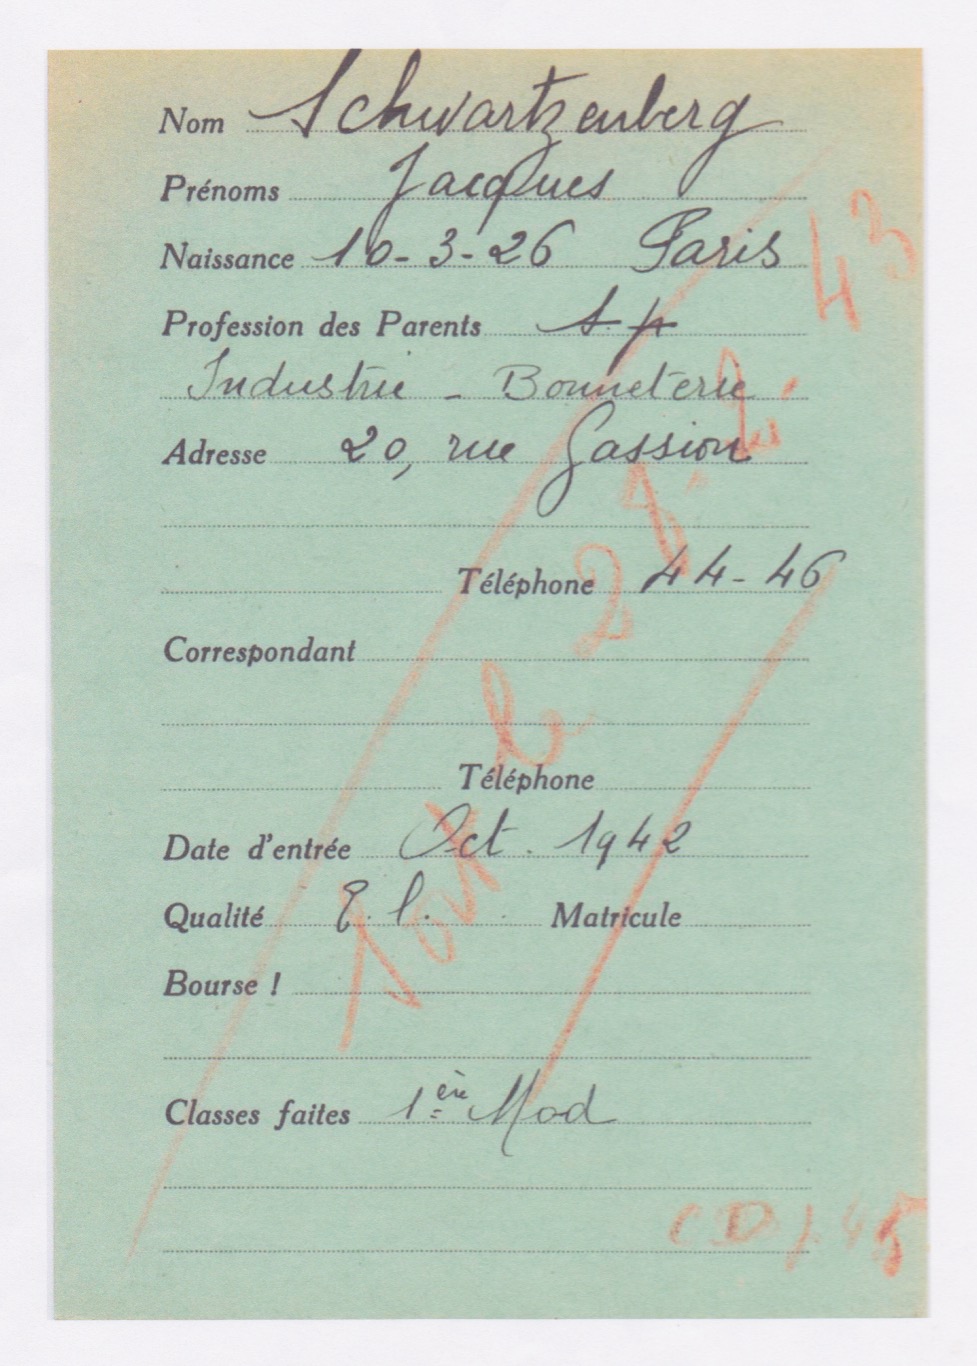 Nom Schwartzenberg
Prénoms Jacques
Naissance 10-3-26 Paris
Profession des Parents s.p
Industrie - Bonneterie
Adresse 20, rue Gassion
Téléphone 44-46
Correspondant
Téléphone
Date d'entrée Oct. 1942
Qualité E. l. Matricule
Bourse !
Classes faites 1ère Mod
Sort le 28.2.43
(D).45